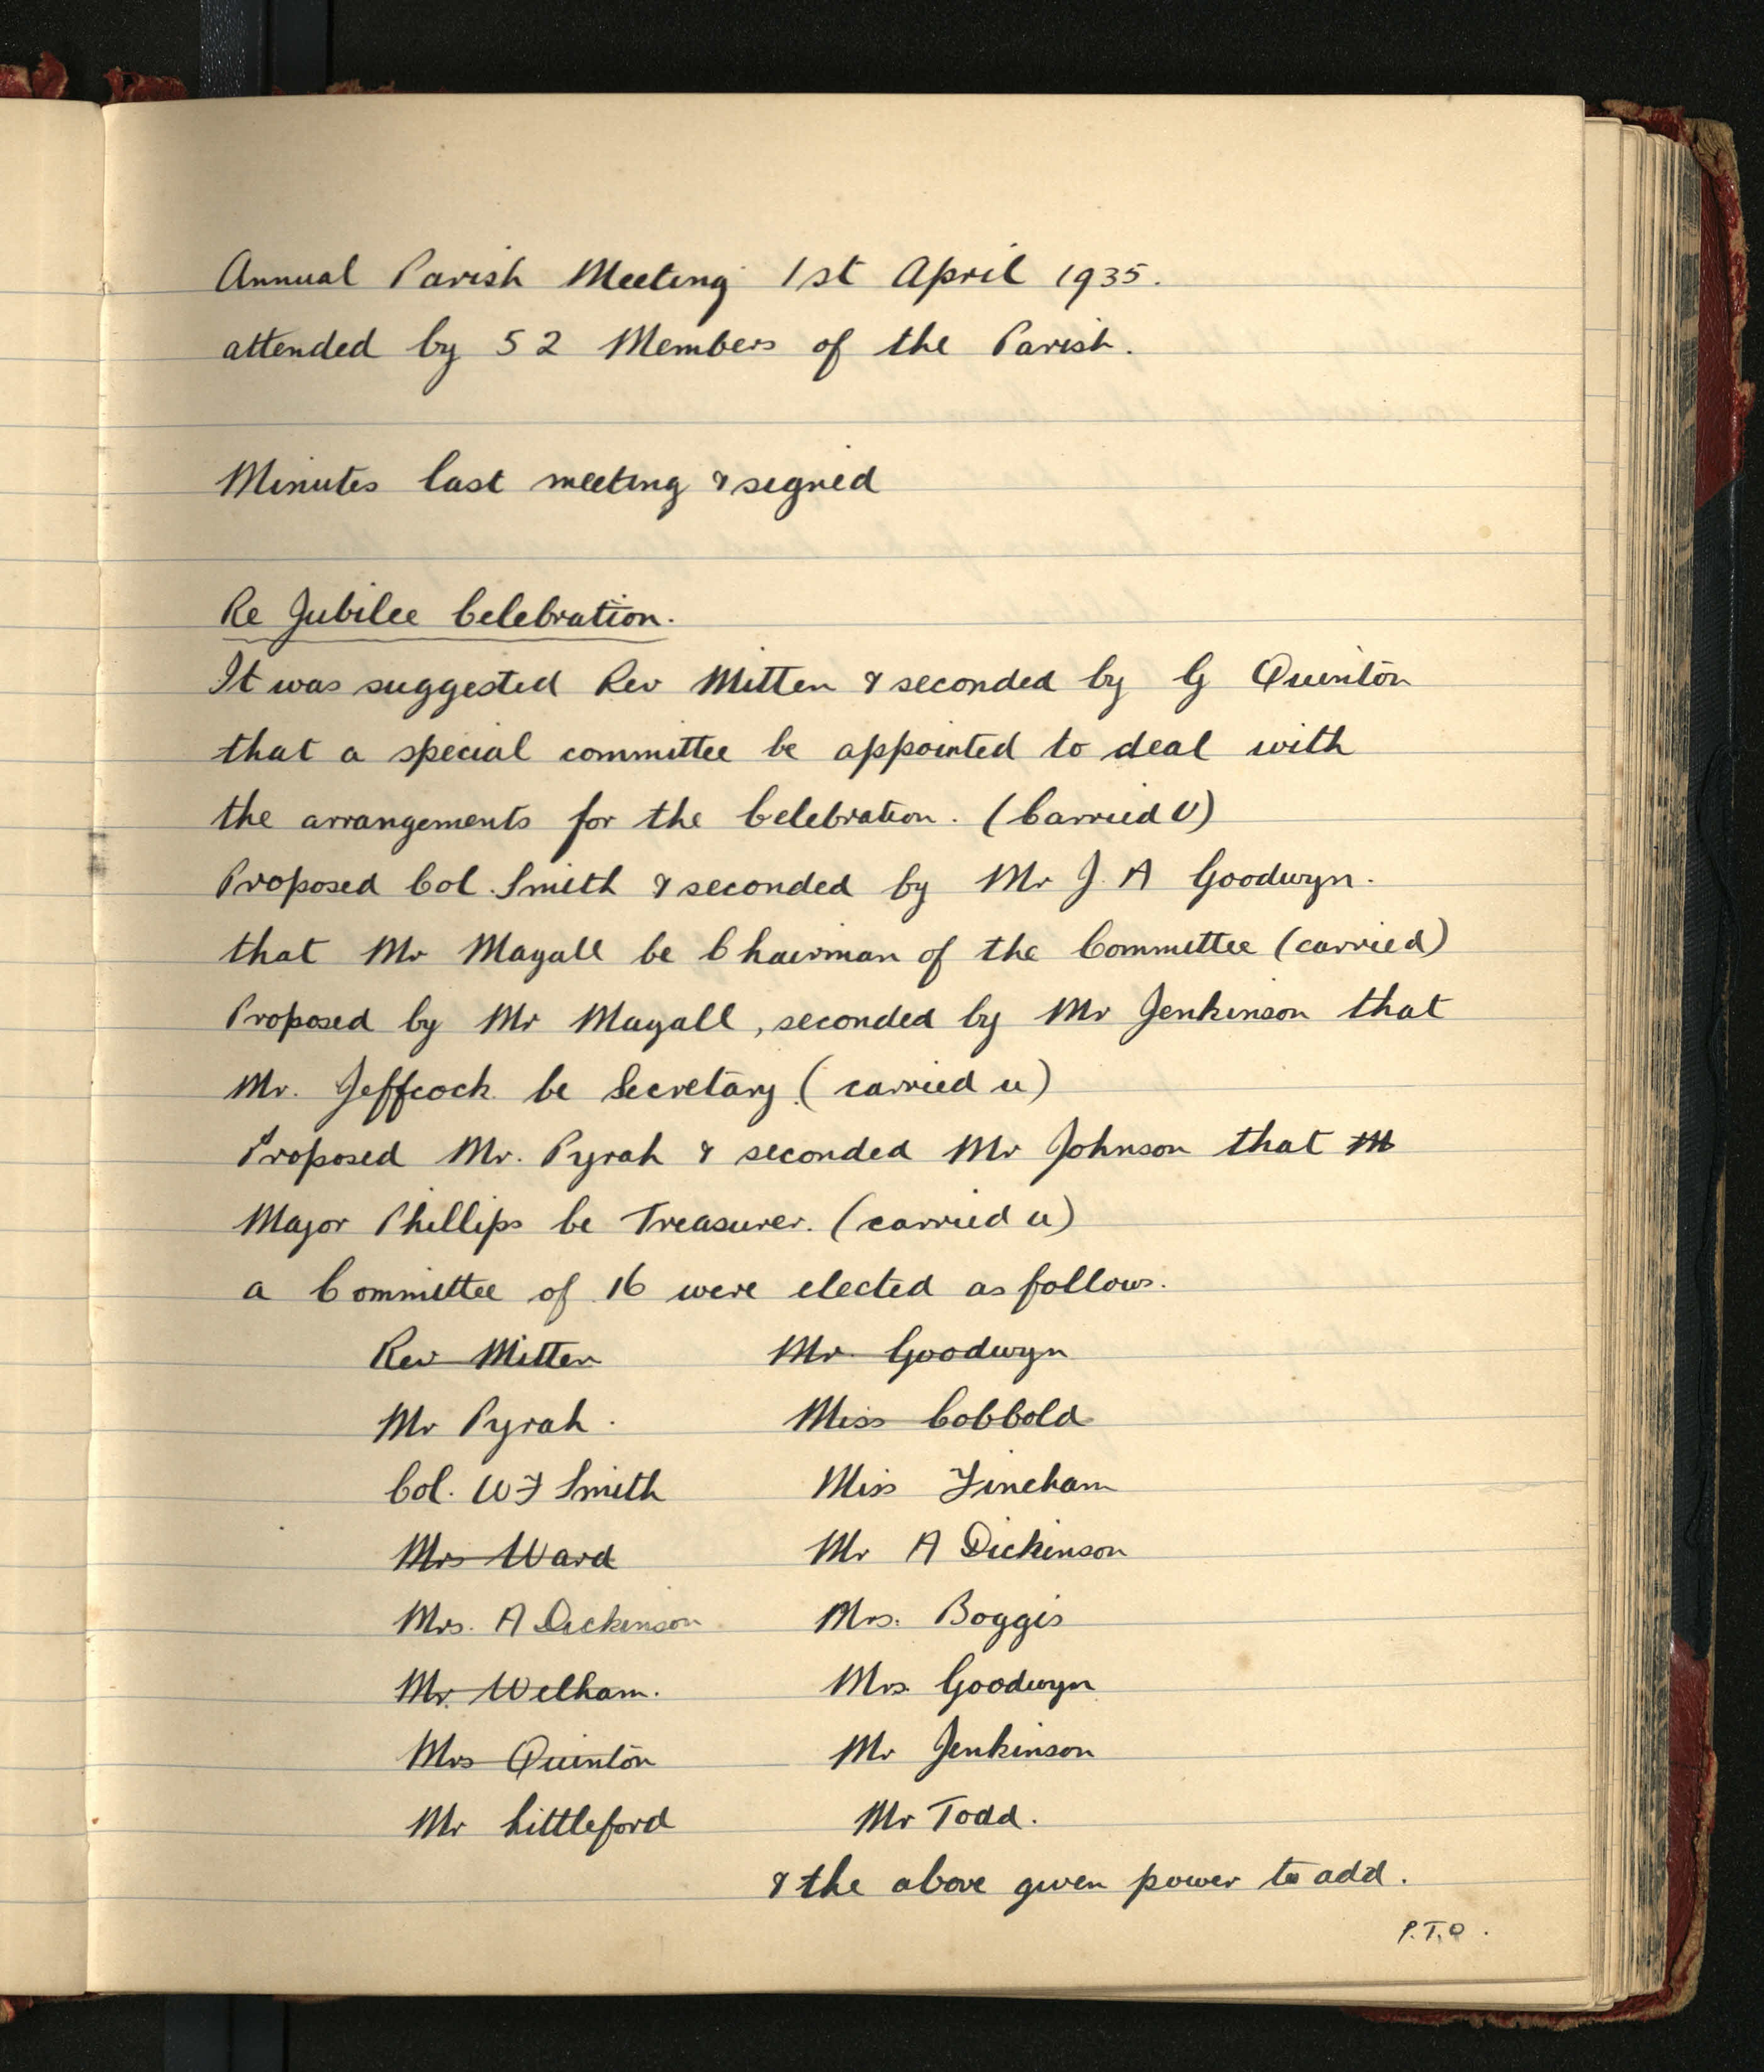 Annual Parish Meeting 1st April 1935.
attended by 52 Members of the Parish.
Minutes last meeting & signed
Re Jubilee Celebration.
It was suggested Rev Mitten & seconded by G Quinton
that a special committee be appointed to deal with
the arrangements for the Celebration. (Carried U)
Proposed Col. Smith & seconded by Mr J. A Goodwyn.
that Mr Mayall be Chairman of the Committee (carried)
Proposed by Mr Mayall, seconded by Mr Jenkinson that
Mr. Jeffcock be Secretary (carried u)
Proposed Mr. Pyrah & seconded Mr Johnson that M
Major Phillips be Treasurer. (carried u)
a Committee of 16 were elected as follows.
Rev Mitten Mr Goodwyn
Mr Pyrah. Miss Cobbold
Col. W F Smith Miss Fincham
Mrs Ward Mr A Dickinson
Mrs. A Dickinson Mrs. Boggis
Mr. Welham. Mrs Goodwyn
Mrs Quinton Mr Jenkinson
Mr Littleford Mr Todd.
& the above given power to add.
P.T.O.